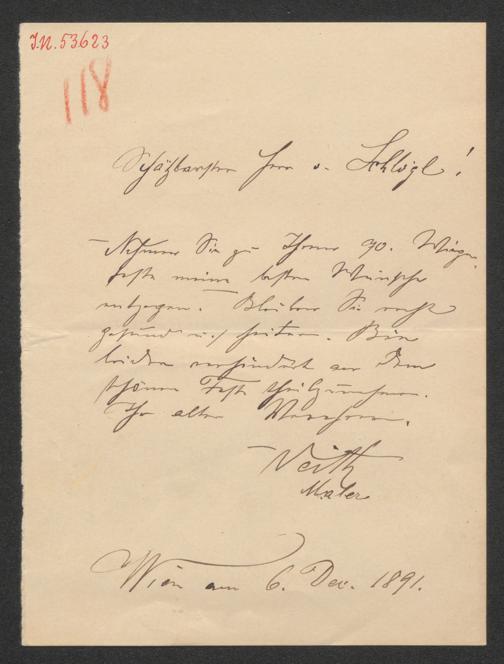 I.N. 53623
118
Schätzbarster Herr v. Schlögl!
Nehmen Sie zu Ihrem 70. Wiegen-
feste meine besten Wünsche
entgegen. Bleiben Sie recht
gesund u. heiter. Bin
leider verhindert an dem
schönen Feste theilzunehmen.
Ihr alter Verehrer,
Veith
Maler
Wien am 6. Dez. 1891.